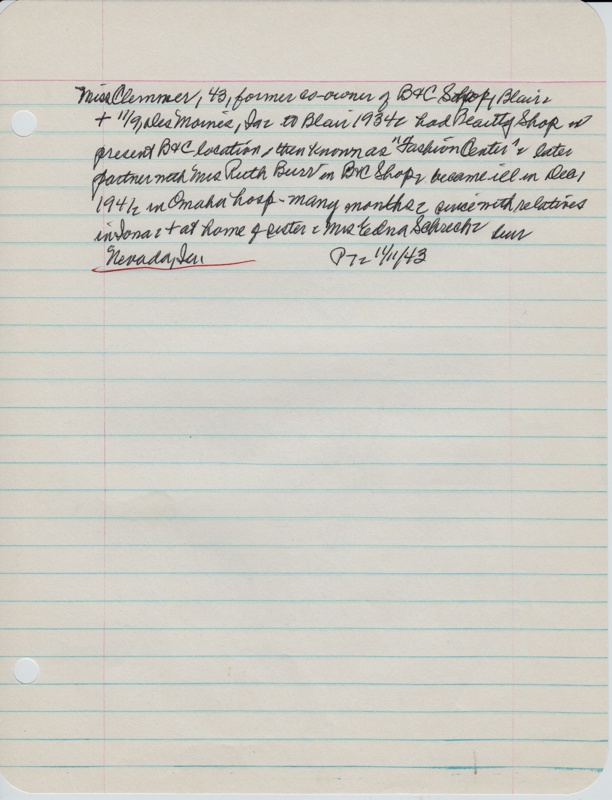 Miss Clemmer, 43, former co-owner of B&C Shop, Blair,
+ 11/9, Des Moines, Ia. to Blair 1934 had Beauty Shop in
present B&C location, then known as "Fashion Center" later
partner with Mrs Ruth Burr in B&C Shop, became ill in Dec,
1941, in Omaha hosp - many months, since with relatives
in Iowa, + at home of sister, Mrs Edna
Nevada, Ia. PT 11/11/43